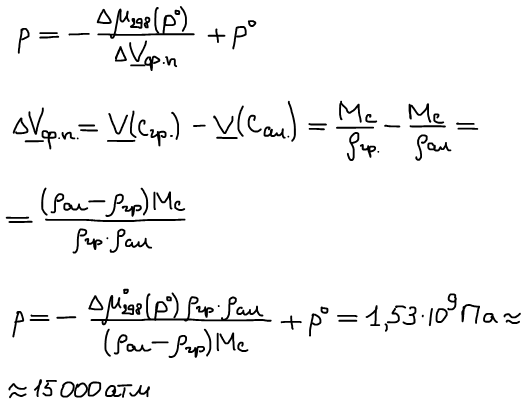 p = - Δμ₂₉₈(p°) / ΔV̲ф.п + p°
ΔV̲ф.п. = V̲(Cгр.) - V̲(Cал.) = Mc/ρгр. - Mc/ρал =
= (ρал - ρгр)Mc / ρгр·ρал
p = - Δμ°₂₉₈(p°) ρгр·ρал / (ρал - ρгр)Mc + p° = 1,53·10⁹ Па ≈
≈ 15000 атм